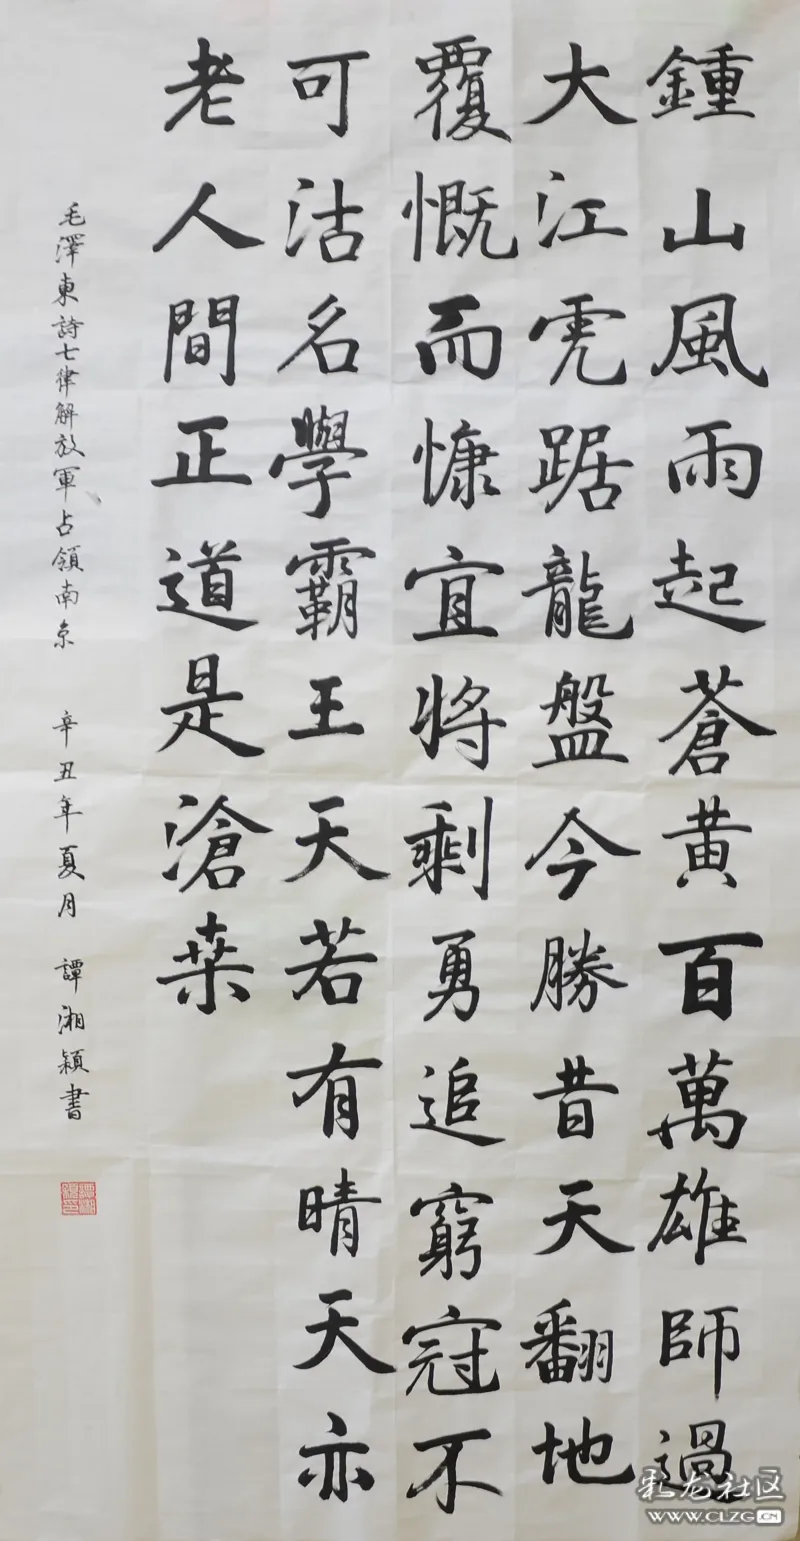 鍾山風雨起蒼黃百萬雄師過
大江虎踞龍盤今勝昔天翻地
覆慨而慷宜將剩勇追窮冦不
可沽名學霸王天若有晴天亦
老人間正道是滄桒
毛澤東詩七律解放軍占領南京 辛丑年夏月 譚湘穎書
彩龙社区
WWW.CLZG.CN